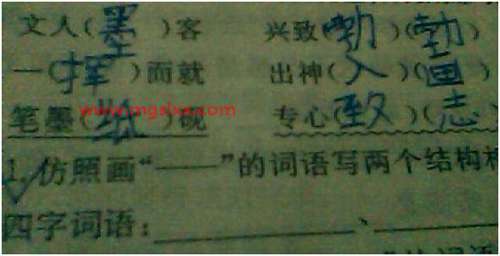 文人(墨)客 兴致(勃)(勃)
一(挥)而就 出神(入)(画)
笔墨(纸)砚 专心(致)(志)
www.mgslxs.com
1.仿照画“——”的词语写两个结构
四字词语:________、________